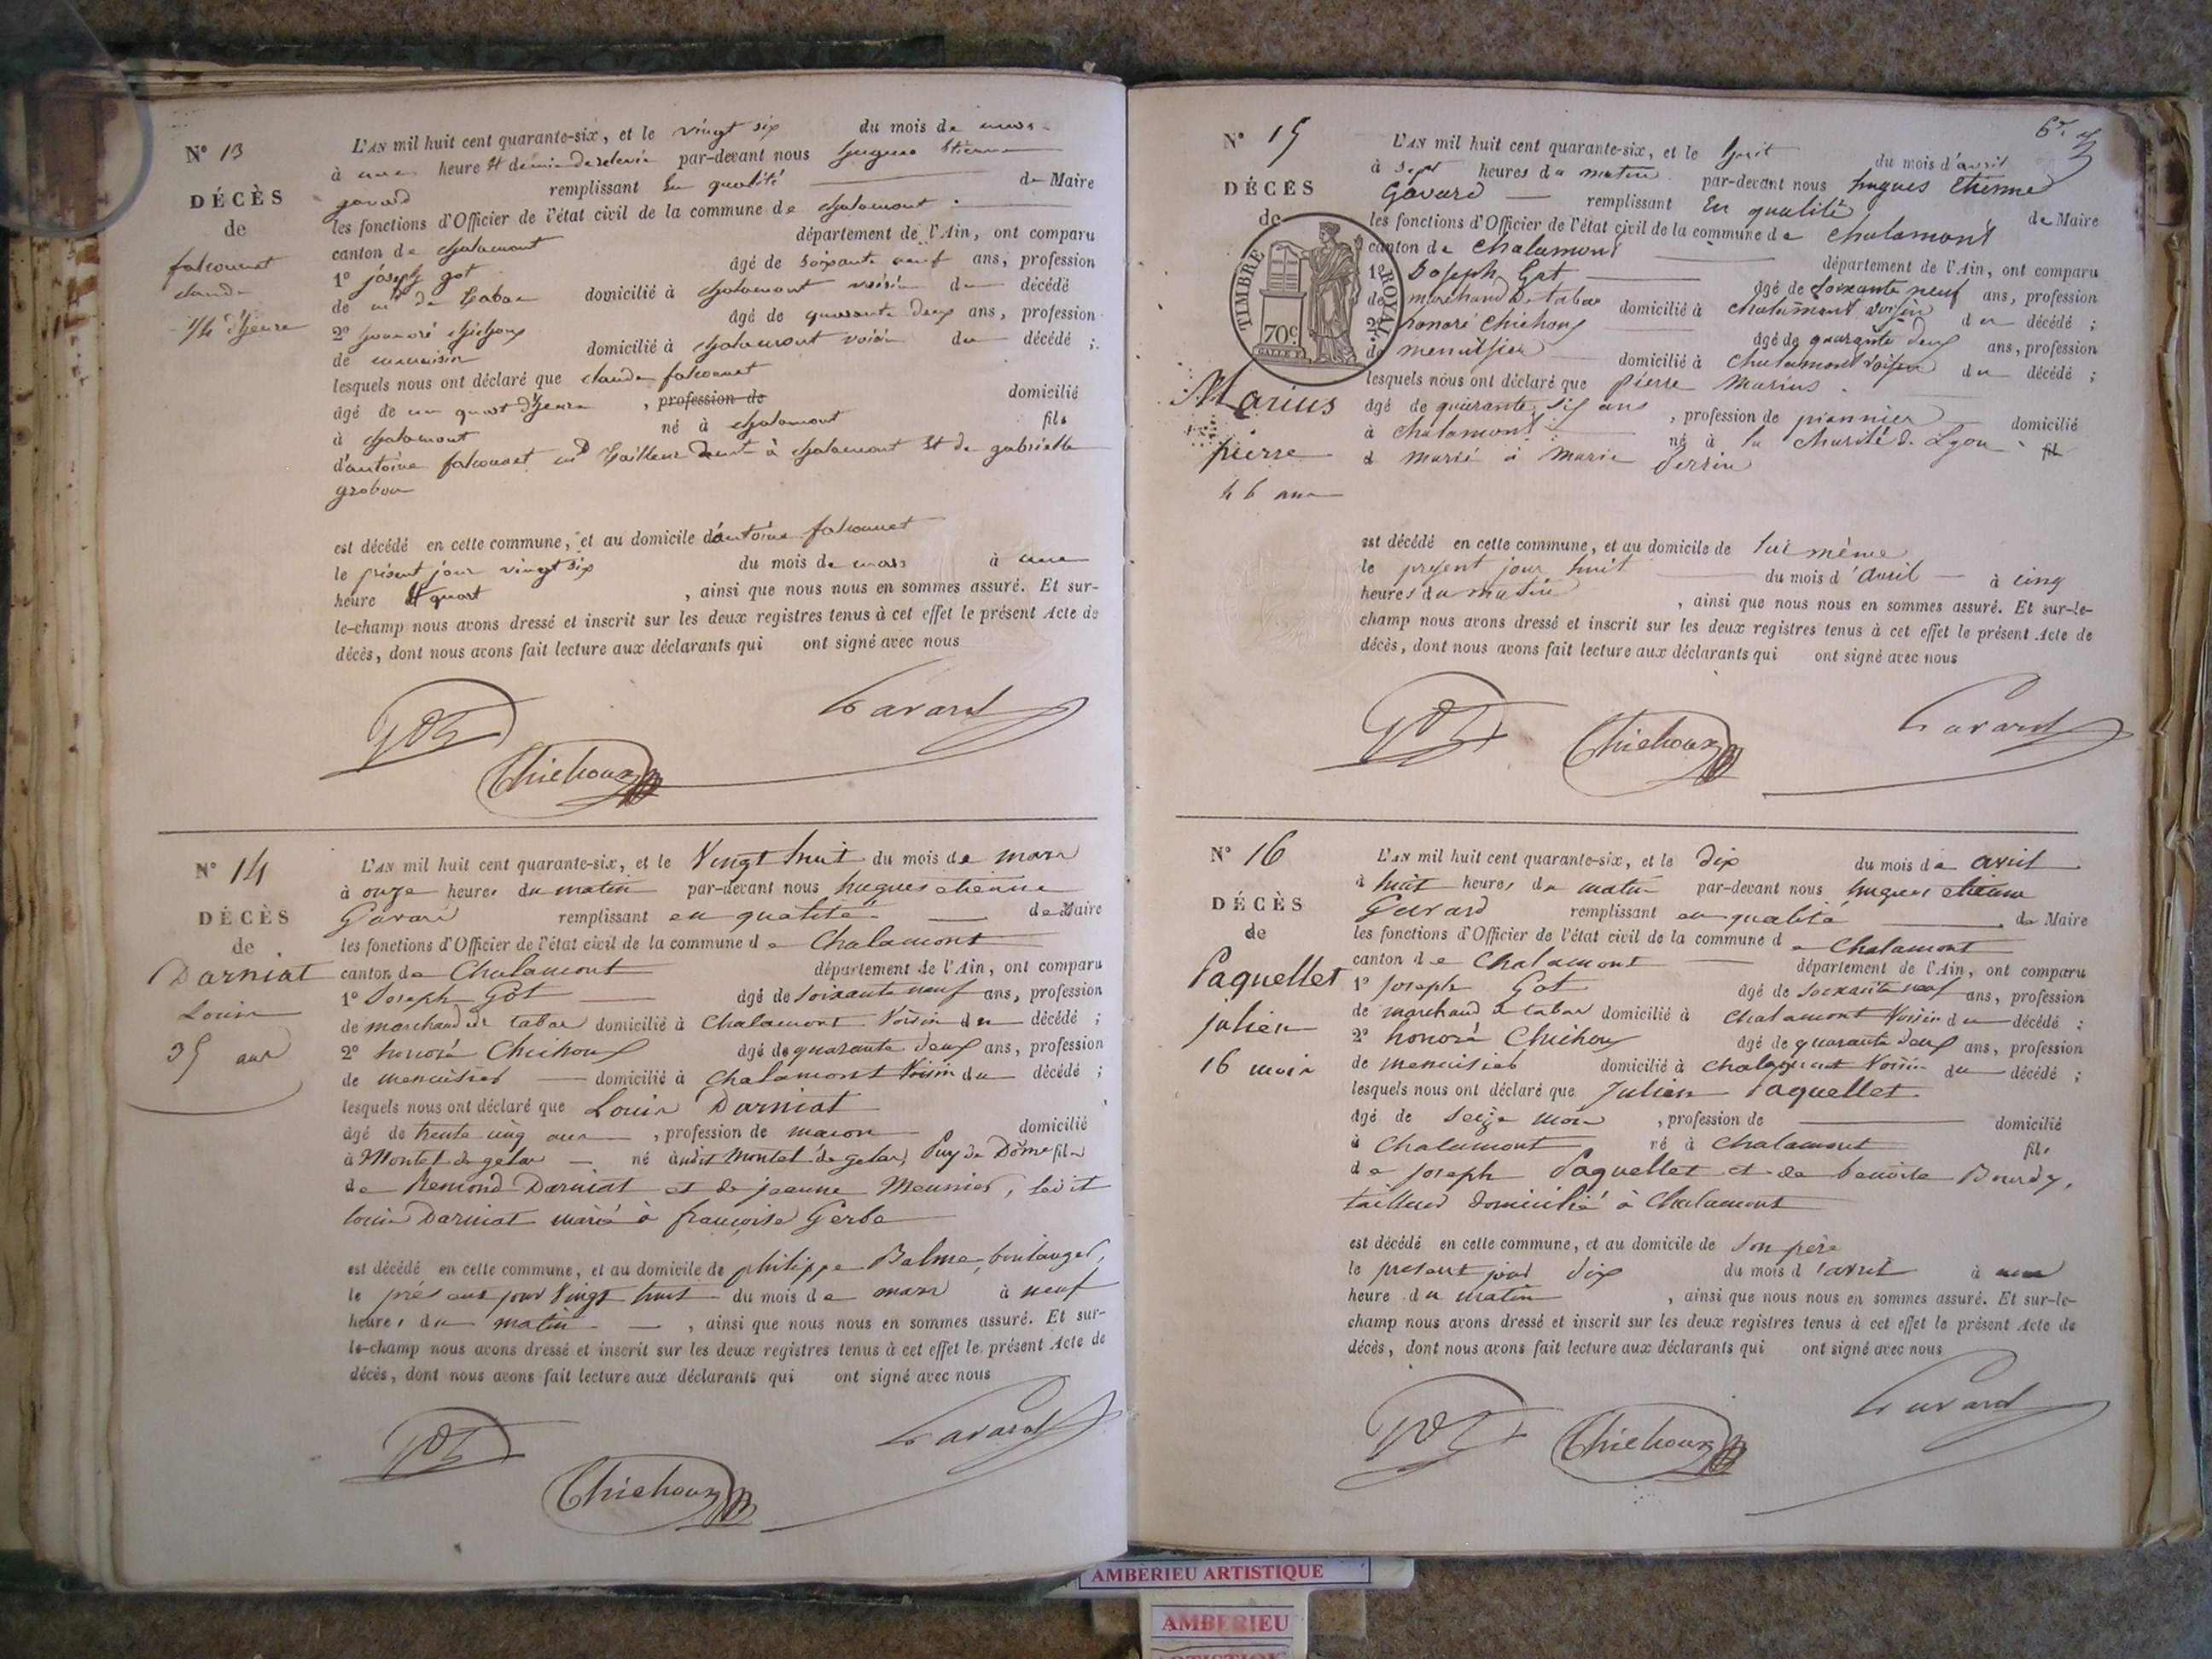 N° 13
DÉCÈS
de
falconnet
claude
1/4 d'heure
L'AN mil huit cent quarante-six, et le vingt six du mois de mars
à une heure et demie de relevée par-devant nous hugues étienne
gavard remplissant en qualité de Maire
les fonctions d'Officier de l'état civil de la commune de chalamont
canton de chalamont département de l'Ain, ont comparu
1° joseph got âgé de soixante neuf ans, profession
de md de tabac domicilié à chalamont voisin du décédé
2° honoré chichoux âgé de quarante deux ans, profession
de menuisier domicilié à chalamont voisin du décédé ;
lesquels nous ont déclaré que claude falconnet
âgé de un quart d'heure , profession de domicilié
à chalamont né à chalamont fils
d'antoine falconnet md tailleur demt à chalamont et de gabrielle
grobon
est décédé en cette commune, et au domicile d'antoine falconnet
le présent jour vingt six du mois de mars à une
heure et quart , ainsi que nous nous en sommes assuré. Et sur-
le-champ nous avons dressé et inscrit sur les deux registres tenus à cet effet le présent Acte de
décès, dont nous avons fait lecture aux déclarants qui ont signé avec nous
Got
Chichoux
Gavard
N° 14
DÉCÈS
de
Darniat
Louis
35 ans
L'AN mil huit cent quarante-six, et le Vingt huit du mois de mars
à onze heures du matin par-devant nous hugues etienne
Gavard remplissant en qualité de Maire
les fonctions d'Officier de l'état civil de la commune de Chalamont
canton de Chalamont département de l'Ain, ont comparu
1° Joseph Got âgé de soixante neuf ans, profession
de marchand de tabac domicilié à Chalamont Voisin du décédé ;
2° honoré Chichoux âgé de quarante deux ans, profession
de menuisier domicilié à Chalamont Voisin du décédé ;
lesquels nous ont déclaré que Louis Darniat
âgé de trente cinq ans , profession de maçon domicilié
à Montel de gelat né audit Montel de gelat, Puy de Dôme fils
de Remond Darniat et de jeanne Meunier, ledit
louis Darniat marié à françoise Gerbe
est décédé en cette commune, et au domicile de philippe Balme, boulanger,
le présent jour Vingt huit du mois de mars à neuf
heures du matin , ainsi que nous nous en sommes assuré. Et sur-
le-champ nous avons dressé et inscrit sur les deux registres tenus à cet effet le présent Acte de
décès, dont nous avons fait lecture aux déclarants qui ont signé avec nous
Got
Chichoux
Gavard
6e
N° 15
DÉCÈS
de
TIMBRE ROYAL
70c
Marius
pierre
46 ans
L'AN mil huit cent quarante-six, et le huit du mois d'avril
à sept heures du matin par-devant nous hugues Etienne
Gavard remplissant En qualité de Maire
les fonctions d'Officier de l'état civil de la commune de chalamont
canton de chalamont département de l'Ain, ont comparu
1° Joseph Gat âgé de soixante neuf ans, profession
de marchand de tabac domicilié à chalamont voisin du décédé ;
2° honoré Chichoux âgé de quarante deux ans, profession
de menuisier domicilié à chalamont voisin du décédé ;
lesquels nous ont déclaré que pierre Marius
âgé de quarante six ans , profession de pionnier domicilié
à chalamont né à la charité de Lyon fil
d marié à Marie Perrin
est décédé en cette commune, et au domicile de lui même
le présent jour huit du mois d'avril à cinq
heures du matin , ainsi que nous nous en sommes assuré. Et sur-le-
champ nous avons dressé et inscrit sur les deux registres tenus à cet effet le présent Acte de
décès, dont nous avons fait lecture aux déclarants qui ont signé avec nous
Got
Chichoux
Gavard
N° 16
DÉCÈS
de
Paquellet
julien
16 mois
L'AN mil huit cent quarante-six, et le dix du mois de avril
à huit heures du matin par-devant nous hugues etienne
Gavard remplissant en qualité de Maire
les fonctions d'Officier de l'état civil de la commune de Chalamont
canton de Chalamont département de l'Ain, ont comparu
1° joseph Got âgé de soixante neuf ans, profession
de marchand de tabac domicilié à Chalamont Voisin du décédé ;
2° honoré Chichoux âgé de quarante deux ans, profession
de menuisier domicilié à Chalamont Voisin du décédé ;
lesquels nous ont déclaré que Julien Paquellet
âgé de seize mois , profession de domicilié
à Chalamont né à Chalamont fils
de joseph Paquellet et de benoite Bourdy,
tailleur domicilié à Chalamont
est décédé en cette commune, et au domicile de son père
le present jour dix du mois d'avril à une
heure du matin , ainsi que nous nous en sommes assuré. Et sur-le-
champ nous avons dressé et inscrit sur les deux registres tenus à cet effet le présent Acte de
décès, dont nous avons fait lecture aux déclarants qui ont signé avec nous
Got
Chichoux
Gavard
AMBERIEU ARTISTIQUE
AMBERIEU
ARTISTIQUE